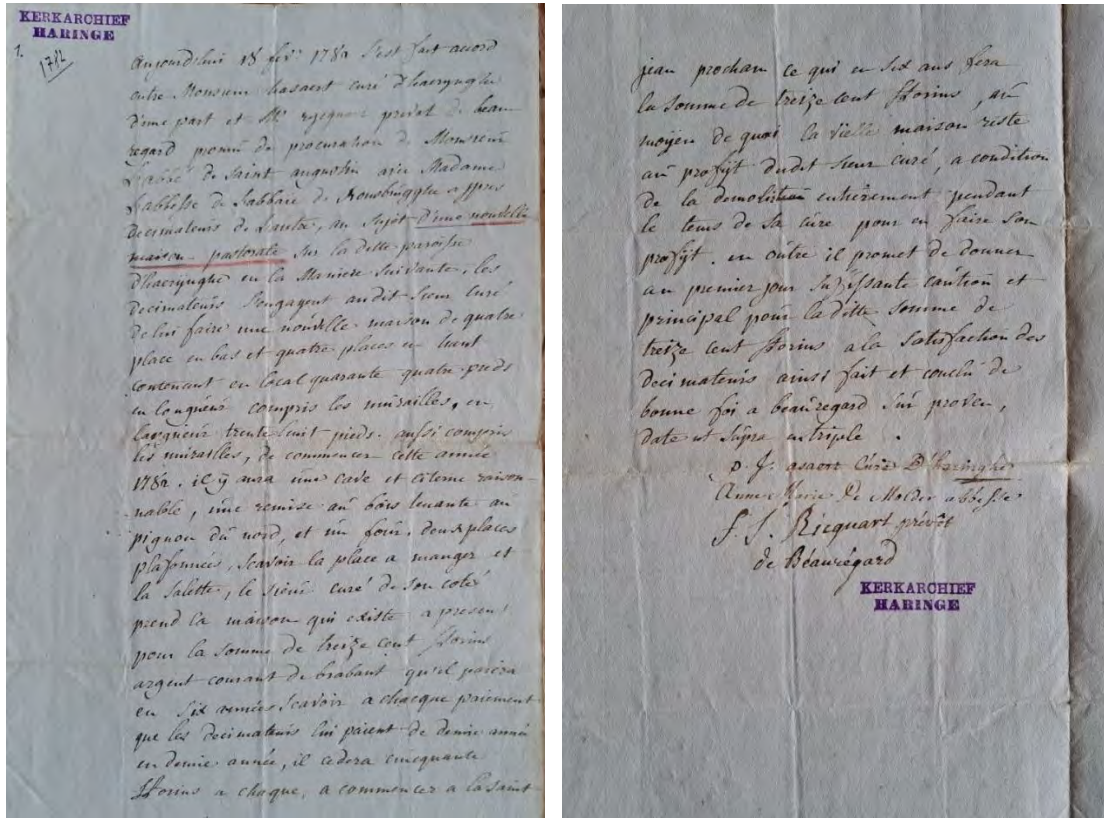 KERKARCHIEF
HARINGE
1.
1782
aujourd'hui 18 fév: 1782 s'est fait acord
entre Monsieur hasaert curé d'haerynghe
d'une part et Mr. ricquart prévôt de beau
regard promü de procuration de Monsieur
L'abbé de saint augustin avec Madame
L'abbesse de L'abbaie de Ronsbrugghe a ypres
decimateurs de L'autre, au sujèt d'une nouvelle
maison pastorale sur la ditte paroisse
d'haerynghe en la Maniere suivante, les
decimateurs s'engagent audit sieur curé
de lui faire une nouvelle maison de quatre
place en bas et quatre places en haut
contenant en local quarante quatre pieds
en longueur compris les murailles, en
largueur trente huit pieds. aussi compris
les murailles, de commencer cette année
1782. il ÿ aura une cave et citerne raison-
nable, une remise au bois tenante au
pignon du nord, et un four. deux places
plafonnées, scavoir la place a manger et
la salette, le sieur curé de son coté
prend la maison qui existe a present
pour la somme de treize cent florins
argent courant de brabant qu'il paiera
en six années scavoir a chacque paiement
que les decimateurs lui paient de demie année
en demie année, il cedera cincquante
florins a chaque, a commencer a la saint
jean prochain ce qui en six ans fera
la somme de treize cent florins, au
moyen de quoi la vielle maison reste
au profyt dudit sieur curé, a condition
de la demolir entièrement pendant
le tems de sa cure pour en faire son
profyt. en outre il promet de donner
au premier jour suffissante caution et
principal pour la ditte somme de
treize cent florins a la satisfaction des
decimateurs ainsi fait et conclu de
bonne foi a beauregard sur proven,
date ut supra en triple.
p. J. asaert Curé D'haringhe
Anne Marie De Molder abbesse
f. J. Ricquart prévôt
de Béaurégard
KERKARCHIEF
HARINGE